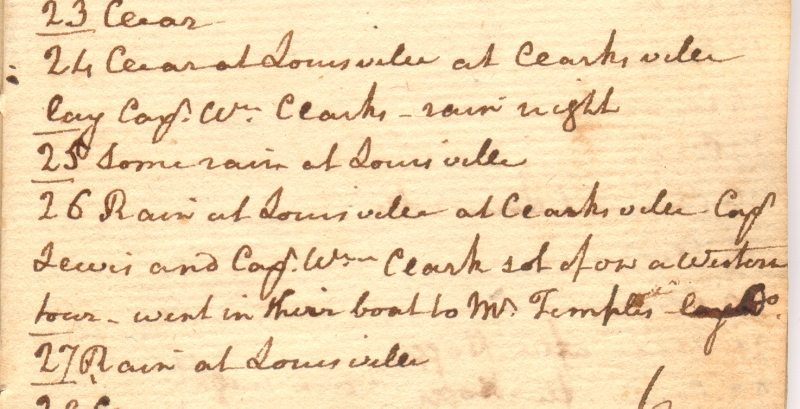 23 Clear
24 Clear at Louisville at Clarksville
lay Capt. Wm. Clarks - rain night
25 Some rain at Louisville
26 Rain at Louisville at Clarksville Capt
Lewis and Capt. Wm Clark set of on a Western
tour - went in their boat to Mr. Temples
27 Rain at Louisville
28